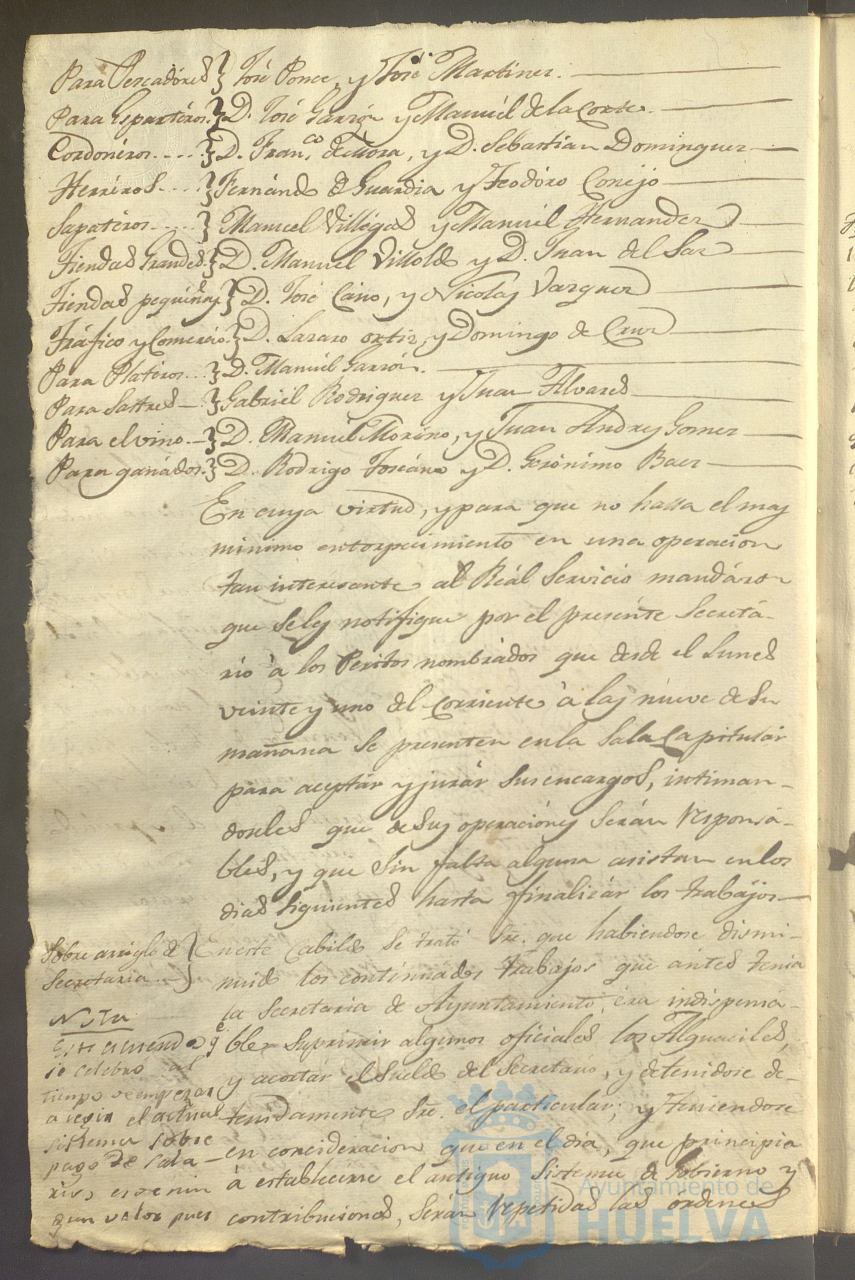 Para Pescadóres } José Ponce, y José Martinez.
Para Espartéros. } D. José Garzón y Manuél de la Corte.
Cordonéros.... } D. Fran.co de Mora, y D. Sebastian Dominguez
Herréros.... } Fernándo de Guardia y Teodóro Conéjo
Sapatéros..... } Manuel Villégas y Manuél Hernandez
Tiendas Grandes. } D. Manuel Villoldo y D. Juan del Saz
Tiendas pequeñas } D. José Cano, y Nicolas Vazquez
Tráfico y Comercio. } D. Lazaro ortiz, y Domingo de Cruz
Para Platéros... } D. Manuél Garzón.
Para Sastres } Gabriél Rodriguez y Juan Alvares
Para el vino } D. Manuél Moréno, y Juan Andres Gomez
Para ganádos. } D. Rodrigo Toscáno y D. Gerónimo Baez
En cuya virtud, y para que no halla el mas
minimo entorpecimiento en una operacion
tan interesante al Reál Servicio mandáron
que se les notifique por el presénte Secretá-
rio à los Peritos nombrádos que desde el Lunes
veinte y uno del corriente à las nueve de su
mañana se presenten en la Sala Capitular
para aceptár y jurár sus encargos, intiman-
doseles que de sus operaciónes serán responsá-
bles, y que sin falta alguna asistan en los
dias siguientes hasta finalicár los trabájos
Sobre arriglo de
Secretaria
} En este Cabildo se trató Sre. que habiendose dismi-
nuido los continuádos trabajos que ántes tenia
la Secretaria de Ayuntamiento, éra indispensá-
ble suprimir algunos oficiales los Alguaciles,
y acortár el sueldo del Secretario, y detenidose de-
tenidamente Sre. el particular; y teniendose
en concideracion que en el dia, que principia
à establecerse el antiguo Sistema de Gobierno y
contribuciones, serán repetidas las ordenes
Nota
Este acuerdo q.e
se celebro al
tiempo de empezar
a regir el actual
sistema sobre
pago de sala-
rios, es de nin
gun valor pues
Ayuntamiento de
HUELVA